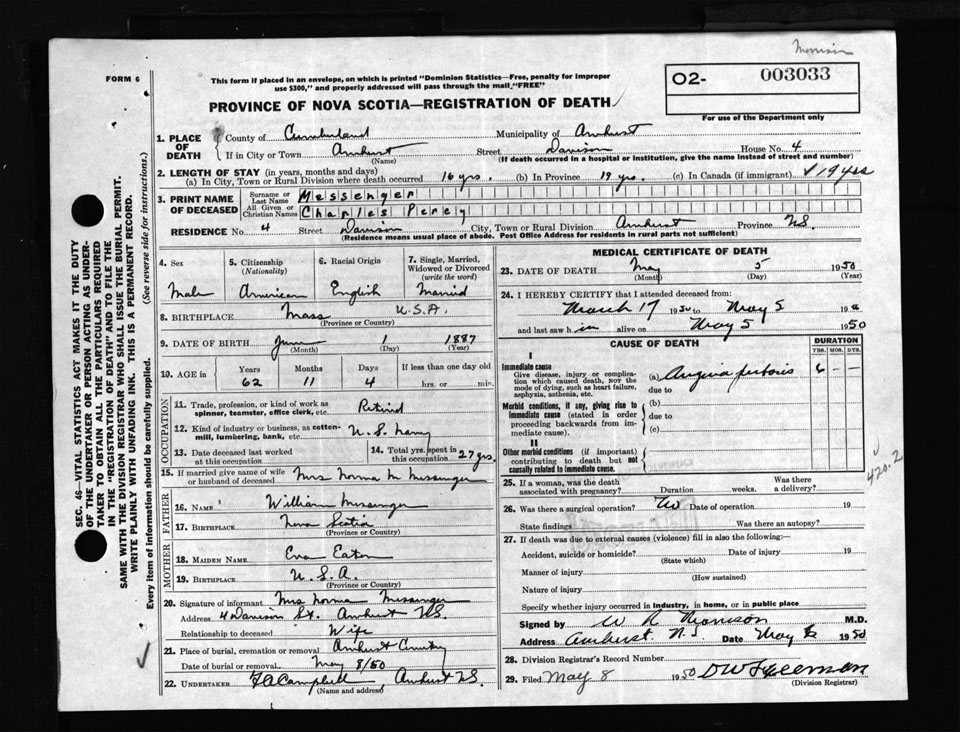 Morrison
FORM 6
This form if placed in an envelope, on which is printed "Dominion Statistics—Free, penalty for improper
use $300," and properly addressed will pass through the mail, "FREE"
O2- 003033
For use of the Department only
PROVINCE OF NOVA SCOTIA—REGISTRATION OF DEATH
1. PLACE OF DEATH County of Cumberland Municipality of Amherst
If in City or Town Amherst Street Davison House No. 4
(Name) (If death occurred in a hospital or institution, give the name instead of street and number)
2. LENGTH OF STAY (in years, months and days)
(a) In City, Town or Rural Division where death occurred 16 yrs. (b) In Province 19 yrs. (c) In Canada (if immigrant) 19 yrs
3. PRINT NAME OF DECEASED Surname or Last Name Messenger
All Given or Christian Names Charles Percy
RESIDENCE No. 4 Street Davison City, Town or Rural Division Amherst Province N.S.
(Residence means usual place of abode. Post Office Address for residents in rural parts not sufficient)
4. Sex Male
5. Citizenship (Nationality) American
6. Racial Origin English
7. Single, Married, Widowed or Divorced (write the word) Married
8. BIRTHPLACE Mass U.S.A.
(Province or Country)
9. DATE OF BIRTH June 1 1887
(Month) (Day) (Year)
10. AGE in Years Months Days If less than one day old
62 11 4 hrs. or min.
OCCUPATION
11. Trade, profession, or kind of work as
spinner, teamster, office clerk, etc. Retired
12. Kind of industry or business, as cotten-
mill, lumbering, bank, etc. U.S. Navy
13. Date deceased last worked
at this occupation
14. Total yrs. spent in
this occupation 27 yrs.
15. If married give name of wife
or husband of deceased Mrs Norma M Messenger
FATHER
16. NAME William Messenger
17. BIRTHPLACE Nova Scotia
(Province or Country)
MOTHER
18. MAIDEN NAME Eva Eaton
19. BIRTHPLACE U.S.A.
(Province or Country)
20. Signature of informant Mrs Norma Messenger
Address 4 Davison St. Amherst N.S.
Relationship to deceased Wife
21. Place of burial, cremation or removal Amherst Cemetery
Date of burial or removal May 8/50
22. UNDERTAKER F A Campbell, Amherst N.S.
(Name and address)
MEDICAL CERTIFICATE OF DEATH
23. DATE OF DEATH May 5 1950
(Month) (Day) (Year)
24. I HEREBY CERTIFY that I attended deceased from:
March 17 1950 to May 5 19
and last saw h im alive on May 5 1950
CAUSE OF DEATH DURATION
YRS. MOS. DYS.
I
Immediate cause (a) Angina pectoris 6 — —
Give disease, injury or complica-
tion which caused death, NOT the
mode of dying, such as heart failure,
asphyxia, asthenia, etc.
due to
Morbid conditions, if any, giving rise to
immediate cause (stated in order
proceeding backwards from im-
mediate cause).
(b)
due to
(c)
II
Other morbid conditions (if important)
contributing to death but not
causally related to immediate cause.
420.2
25. If a woman, was the death
associated with pregnancy? Duration weeks. Was there
a delivery?
26. Was there a surgical operation? No Date of operation 19
State findings Was there an autopsy?
27. If death was due to external causes (violence) fill in also the following:—
Accident, suicide or homicide? Date of injury 19
(State which)
Manner of injury
(How sustained)
Nature of injury
Specify whether injury occurred in industry, in home, or in public place
Signed by W R Morrison M.D.
Address Amherst N.S. Date May 1950
28. Division Registrar's Record Number
29. Filed May 8 1950
(Division Registrar)
SEC. 46—VITAL STATISTICS ACT MAKES IT THE DUTY
OF THE UNDERTAKER OR PERSON ACTING AS UNDER-
TAKER TO OBTAIN ALL THE PARTICULARS REQUIRED
IN THE "REGISTRATION OF DEATH" AND TO FILE THE
SAME WITH THE DIVISION REGISTRAR WHO SHALL ISSUE THE BURIAL PERMIT.
WRITE PLAINLY WITH UNFADING INK. THIS IS A PERMANENT RECORD.
Every item of information should be carefully supplied. (See reverse side for instructions.)